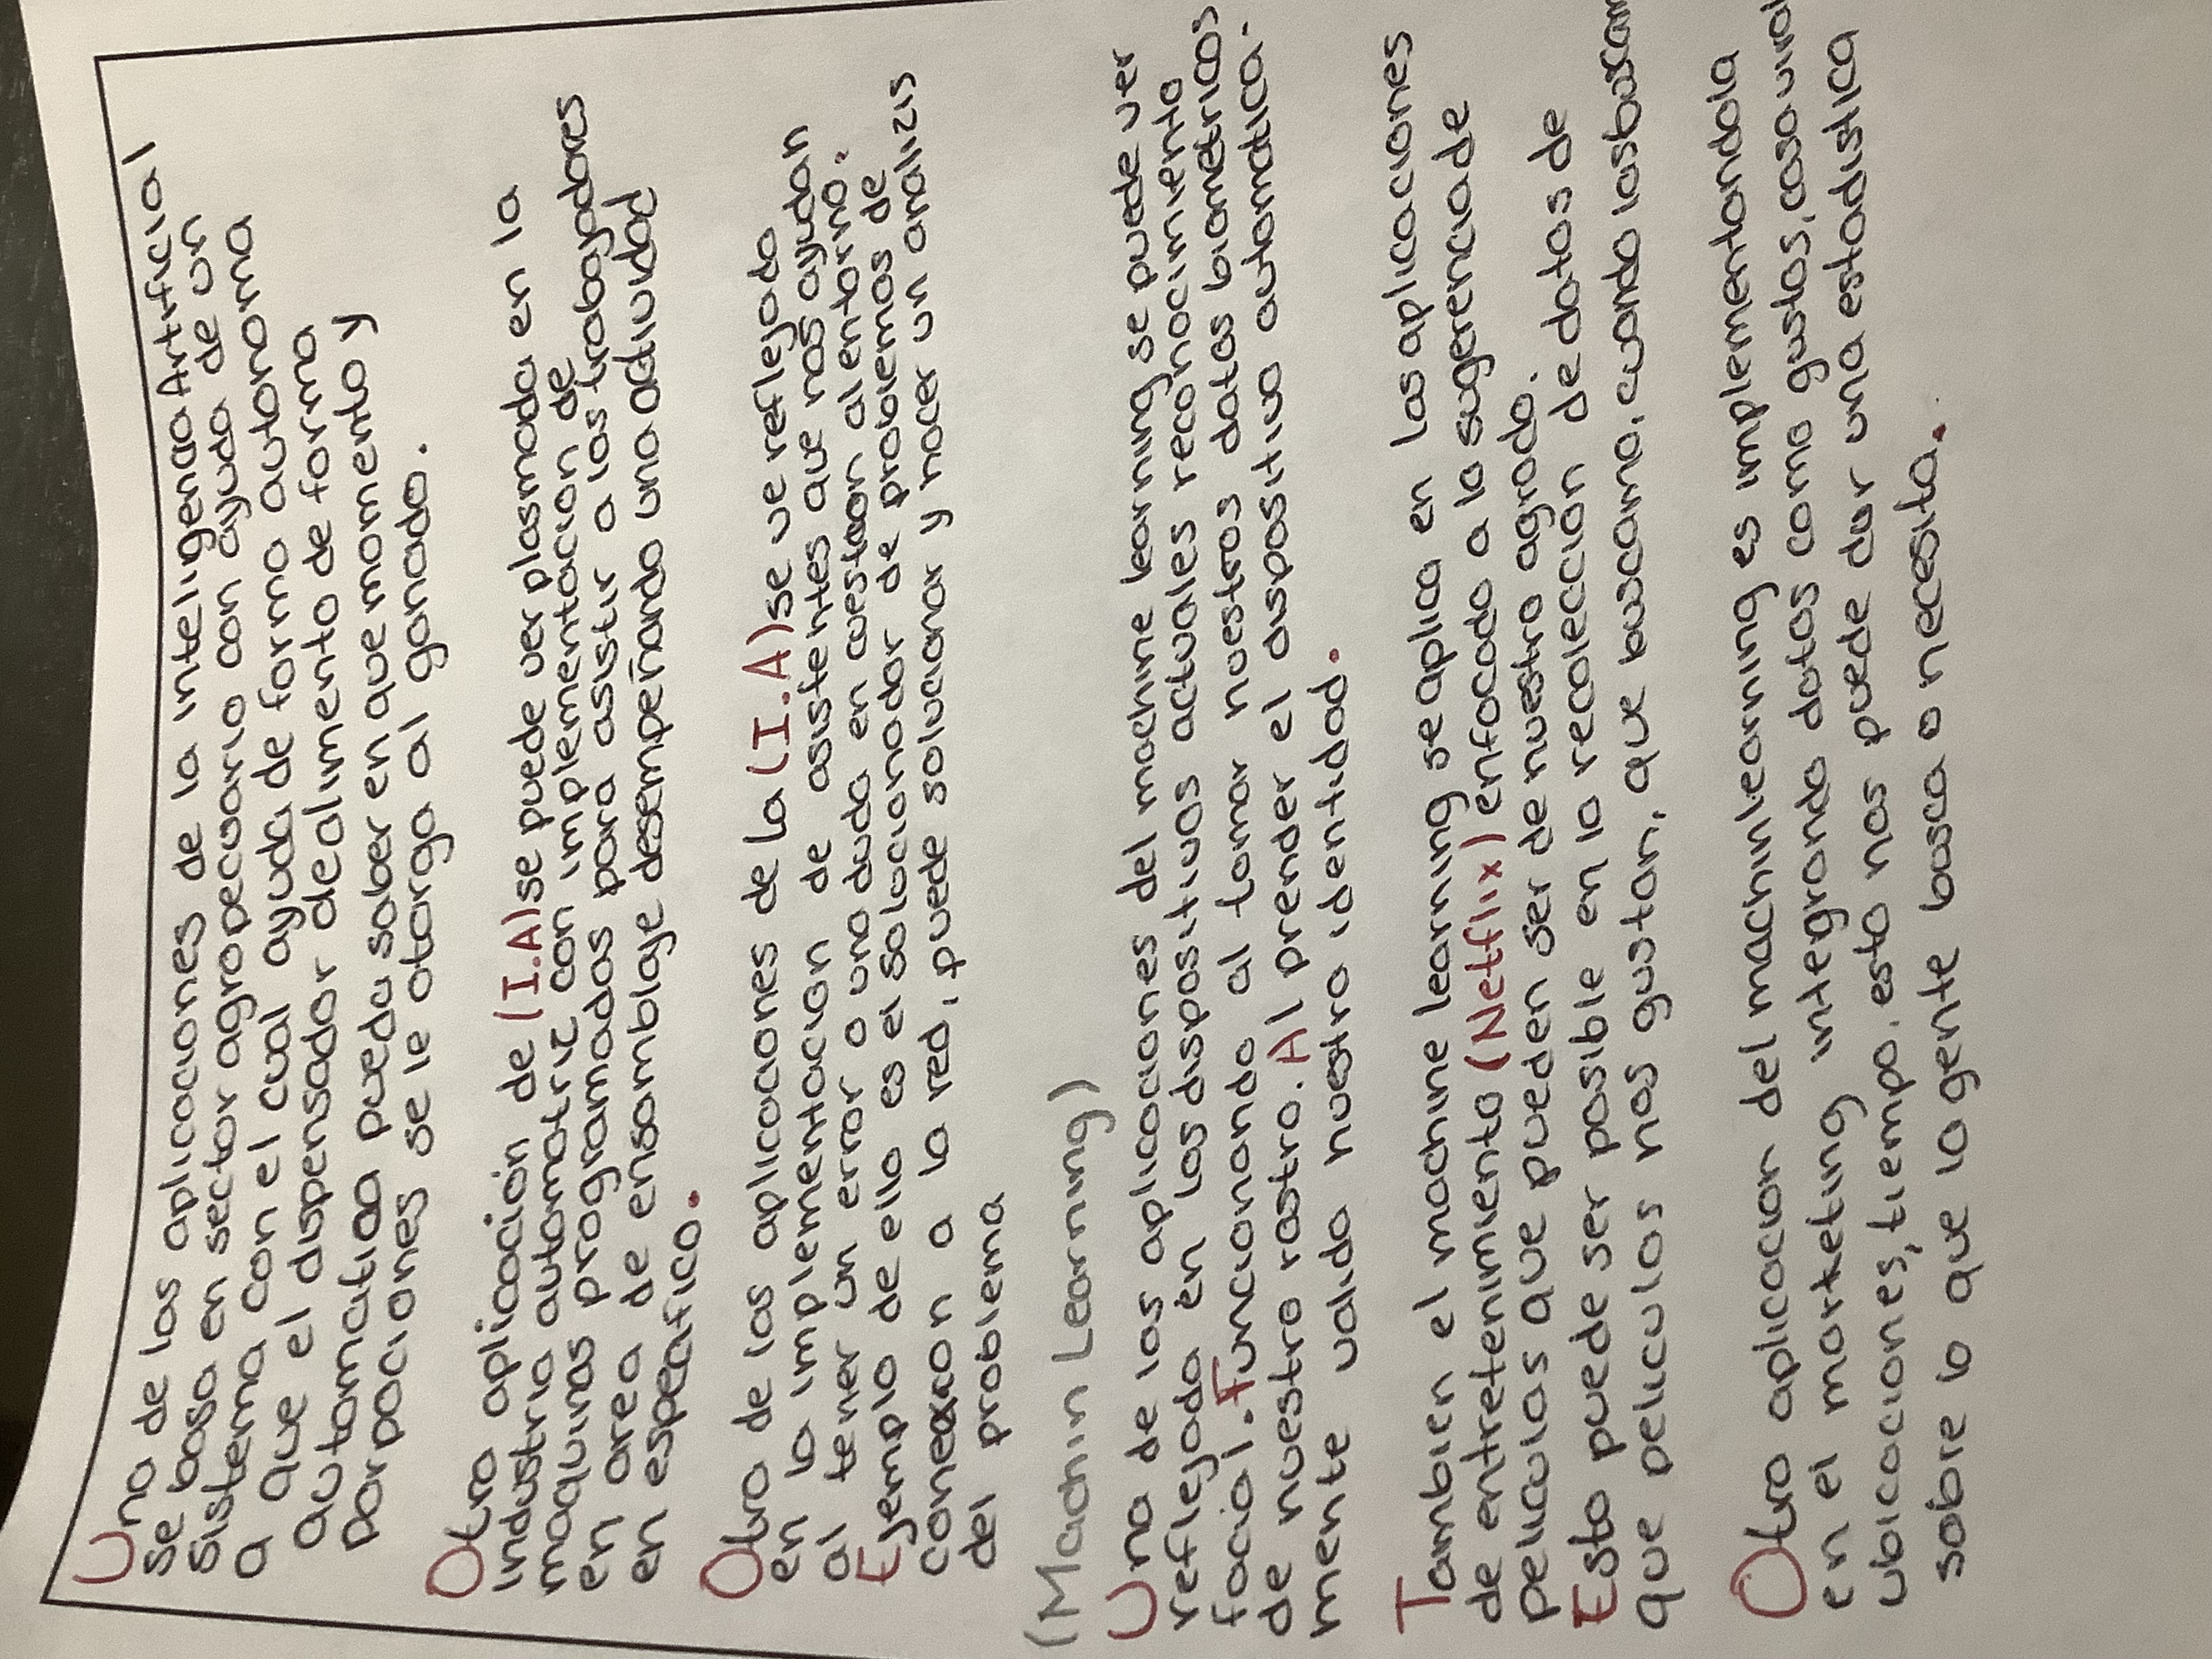 Una de las aplicaciones de la inteligencia Artificial
se basa en sector agropecuario con ayuda de un
sistema con el cual ayuda de forma autonoma
a que el dispensador de alimento de forma
automatica pueda saber en que momento y
porpociones se le otorga al ganado.
Otra aplicación de (I.A) se puede ver plasmada en la
industria automotriz con implementacion de
maquinas programadas para asistir a los trabajadores
en area de ensamblaje desempeñando una actividad
en especifico.
Otra de las aplicaciones de la (I.A) se ve reflejado
en la implementacion de asistentes que nos ayudan
al tener un error o una duda en cuestion al entorno.
Ejemplo de ello es el solucionador de problemas de
conexion a la red, puede solucionar y hacer un analizis
del problema
(Machin Learning)
Una de las aplicaciones del machine learning se puede ver
reflejada en los dispositivos actuales reconocimiento
facial. Funcionando al tomar nuestros datos biometricos
de nuestro rostro. Al prender el dispositivo automatica-
mente valida nuestra identidad.
Tambien el machine learning se aplica en las aplicaciones
de entretenimiento (Netflix) enfocado a la sugerencia de
peliculas que pueden ser de nuestro agrado.
Esto puede ser posible en la recolección de datos de
que peliculas nos gustan, que buscamo, cuando las buscam
Otra aplicacion del machinlearning es implementandola
en el marketing integrando datos como gustos, casa viral
ubicaciones, tiempo, esto nos puede dar una estadistica
sobre lo que la gente busca o necesita.